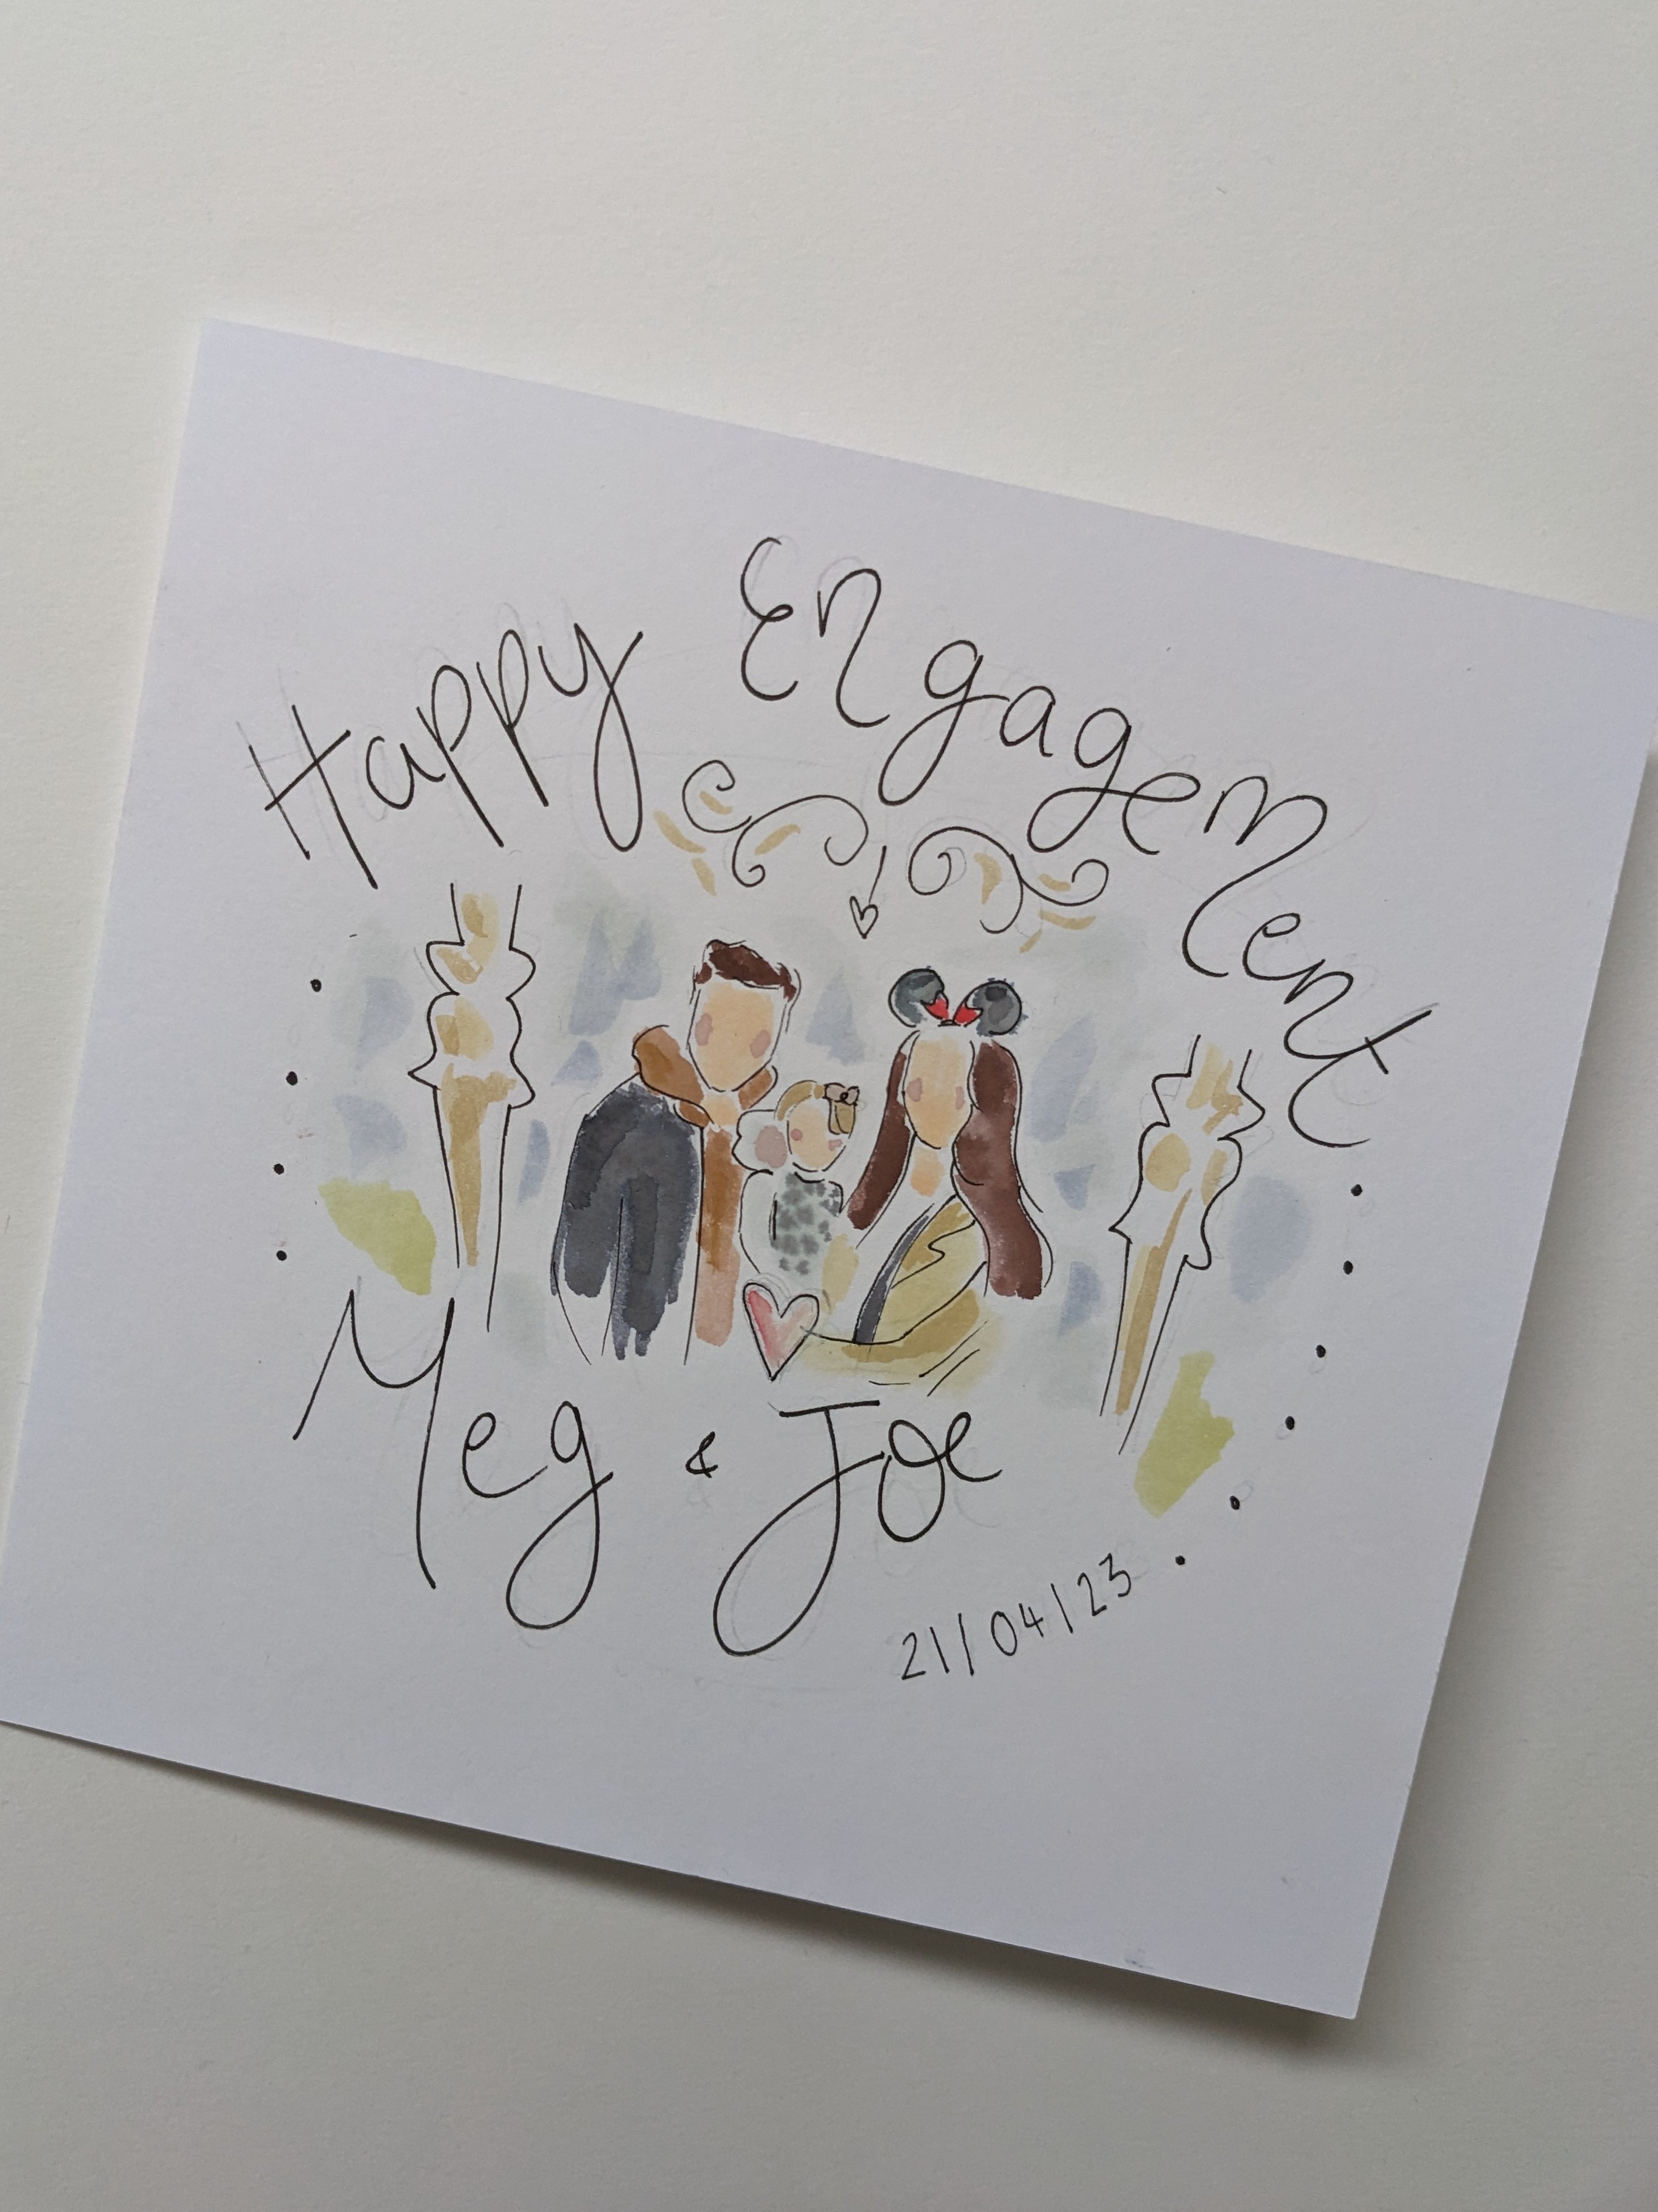 Happy Engagement
Meg & Joe
21/04/23